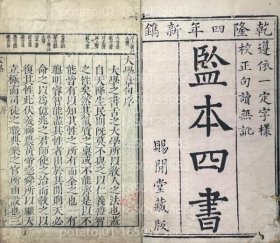 乾隆四年新鐫
遵依一定字樣
校正句讀無訛
監本四書
賜堂藏版
大學章句序
大學之書古之大學所以教人之法也蓋
自天降生民則既莫不與之以仁義禮智
之性矣然其氣質之稟或不能齊是以不
能皆有以知其性之所有而全之也一有
聰明睿智能盡其性者出於其間則天必
命之以為億兆之君師使之治而教之以
復其性此伏羲神農黃帝堯舜所以繼天
立極而司徒之職典樂之官所由設也三